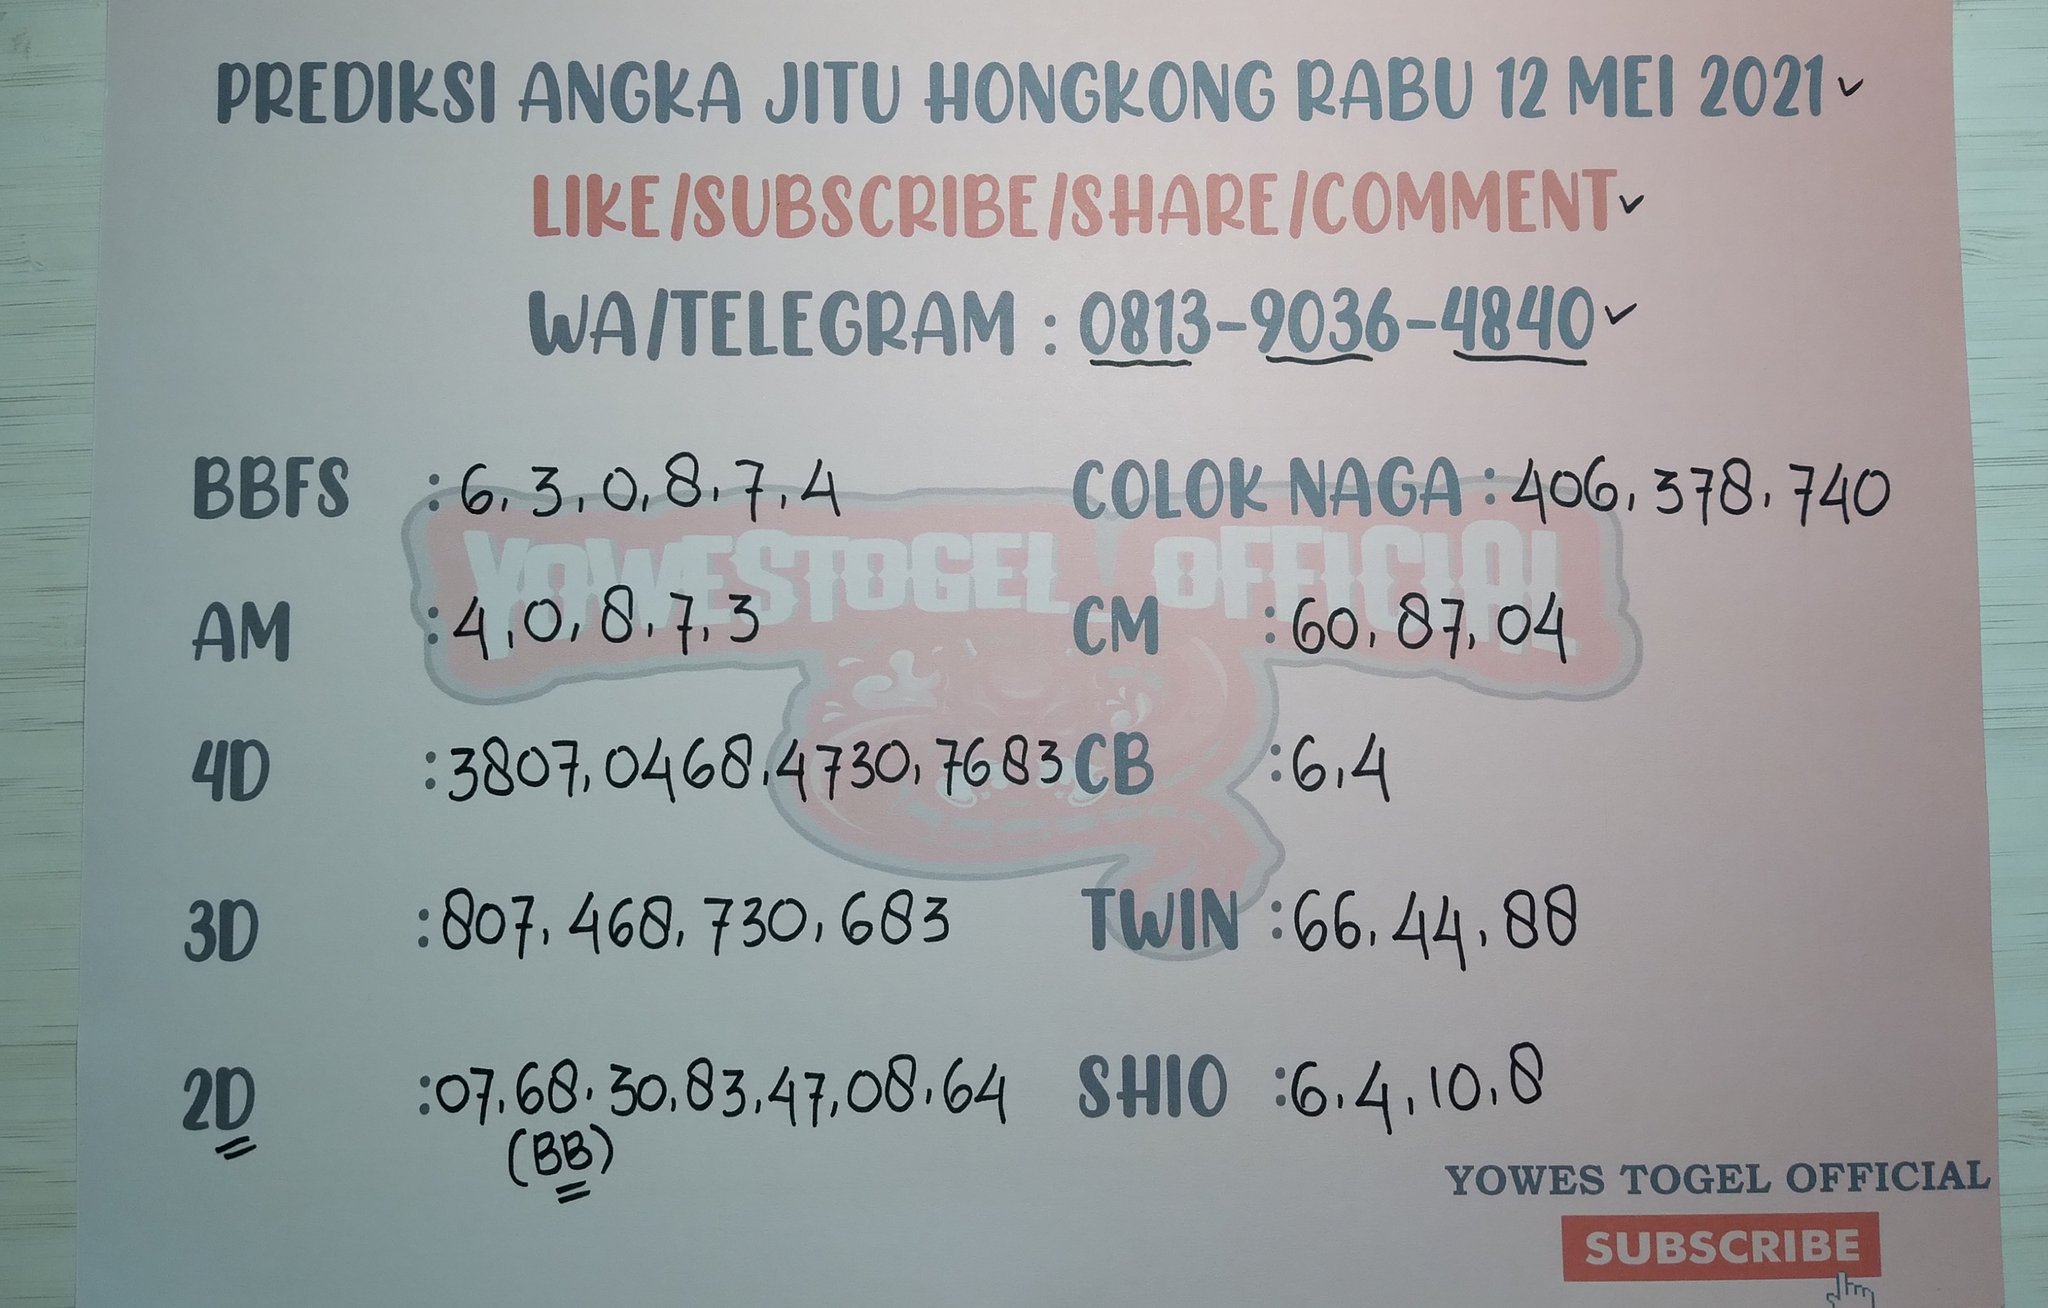 PREDIKSI ANGKA JITU HONGKONG RABU 12 MEI 2021
LIKE/SUBSCRIBE/SHARE/COMMENT
WA/TELEGRAM : 0813-9036-4840
BBFS : 6, 3, 0, 8, 7, 4
COLOK NAGA : 406, 378, 740
YOWESTOGEL OFFICIAL
AM : 4, 0, 8, 7, 3
CM : 60, 87, 04
4D : 3807, 0468, 4730, 7683
CB : 6, 4
3D : 807, 468, 730, 683
TWIN : 66, 44, 88
2D : 07, 68, 30, 83, 47, 08, 64
(BB)
SHIO : 6, 4, 10, 8
YOWES TOGEL OFFICIAL
SUBSCRIBE